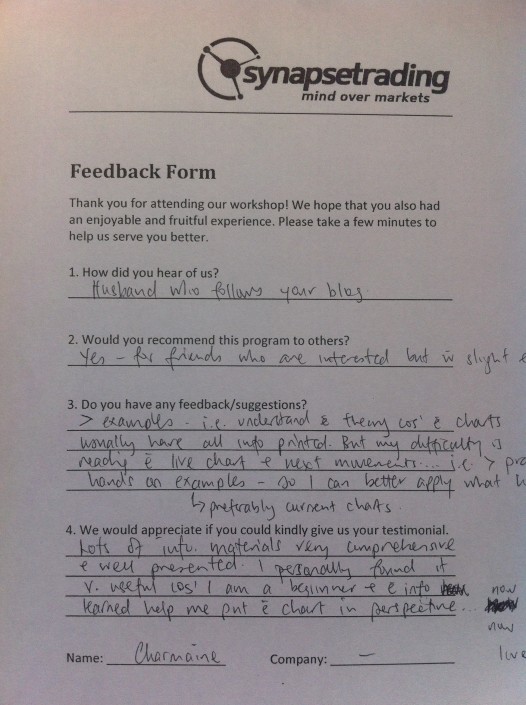 synapsetrading
mind over markets
Feedback Form
Thank you for attending our workshop! We hope that you also had
an enjoyable and fruitful experience. Please take a few minutes to
help us serve you better.
1. How did you hear of us?
Husband who follows your blog.
2. Would you recommend this program to others?
Yes - for friends who are interested but w slight
3. Do you have any feedback/suggestions?
> examples - i.e. understand & theory cos' ē charts
usually have all info printed. But my difficulty is
reading ē live chart & next movements.... i.e. >
hands on examples - so I can better apply what
↳ preferably current charts.
4. We would appreciate if you could kindly give us your testimonial.
Lots of info. materials very comprehensive
& well presented. I personally found it
v. useful cos' I am a beginner & ē info now
learned help me put ē chart in perspective...
now
live
Name: Charmaine Company: –